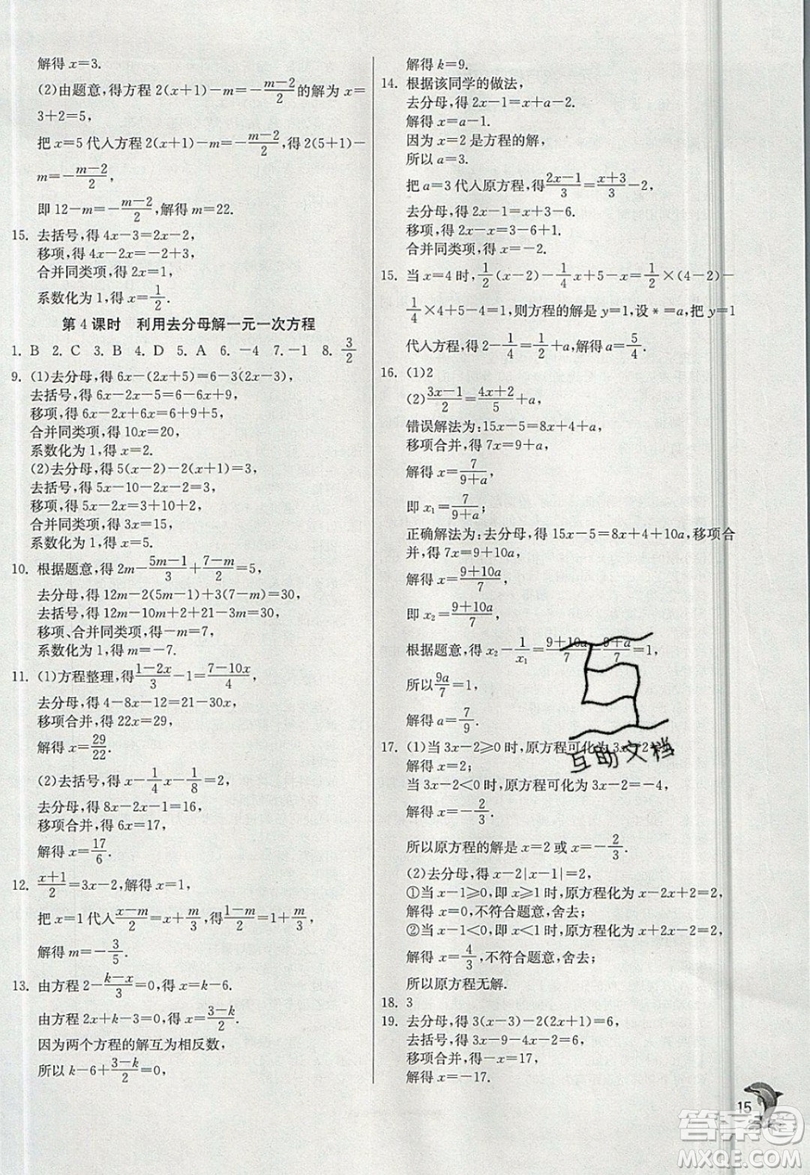 解得 x=3.
(2)由题意，得方程 2(x+1)-m=-\frac{m-2}{2} 的解为 x=
3+2=5,
把 x=5 代入方程 2(x+1)-m=-\frac{m-2}{2}, 得 2(5+1)
-m=-\frac{m-2}{2},
即 12-m=-\frac{m-2}{2}, 解得 m=22.
15. 去括号,得 4x-3=2x-2,
移项,得 4x-2x=-2+3,
合并同类项,得 2x=1,
系数化为 1,得 x=\frac{1}{2}.
第 4 课时 利用去分母解一元一次方程
1. B 2. C 3. B 4. D 5. A 6. -4 7. -1 8. \frac{3}{2}
9. (1)去分母,得 6x-(2x+5)=6-3(2x-3),
去括号,得 6x-2x-5=6-6x+9,
移项,得 6x-2x+6x=6+9+5,
合并同类项,得 10x=20,
系数化为 1,得 x=2.
(2)去分母,得 5(x-2)-2(x+1)=3,
去括号,得 5x-10-2x-2=3,
移项,得 5x-2x=3+10+2,
合并同类项,得 3x=15,
系数化为 1,得 x=5.
10. 根据题意,得 2m-\frac{5m-1}{3}+\frac{7-m}{2}=5,
去分母,得 12m-2(5m-1)+3(7-m)=30,
去括号,得 12m-10m+2+21-3m=30,
移项、合并同类项,得 -m=7,
系数化为 1,得 m=-7.
11. (1)方程整理,得\frac{1-2x}{3}-1=\frac{7-10x}{4},
去分母,得 4-8x-12=21-30x,
移项合并,得 22x=29,
解得 x=\frac{29}{22}.
(2)去括号,得 x-\frac{1}{4}x-\frac{1}{8}=2,
去分母,得 8x-2x-1=16,
移项合并,得 6x=17,
解得 x=\frac{17}{6}.
12. \frac{x+1}{2}=3x-2,解得 x=1,
把 x=1 代入\frac{x-m}{2}=x+\frac{m}{3},得\frac{1-m}{2}=1+\frac{m}{3},
解得 m=-\frac{3}{5}.
13. 由方程 2-\frac{k-x}{3}=0,得 x=k-6.
由方程 2x+k-3=0,得 x=\frac{3-k}{2}.
因为两个方程的解互为相反数,
所以 k-6+\frac{3-k}{2}=0,
解得 k=9.
14. 根据该同学的做法,
去分母,得 2x-1=x+a-2.
解得 x=a-1.
因为 x=2 是方程的解,
所以 a=3.
把 a=3 代入原方程,得\frac{2x-1}{3}=\frac{x+3}{3}-2,
去分母,得 2x-1=x+3-6.
移项合并,得 x=-2.
15. 当 x=4 时,\frac{1}{2}(x-2)-\frac{1}{4}x+5-x=\frac{1}{2}×(4-2)-
\frac{1}{4}×4+5-4=1,则方程的解是 x=1,设＊=a,把 x=1
代入方程,得 2-\frac{1}{4}=\frac{1}{2}-a,解得 a=-\frac{5}{4}.
16. (1)2
(2)\frac{3x-1}{2}=\frac{4x+2}{5}+a,
错误解法为:15x-5=8x+4+a,
移项合并,得 7x=9+a,
解得 x=\frac{7}{9+a},
即 x₁=\frac{7}{9+a};
正确解法为:去分母,得 15x-5=8x+4+10a,移项合
并,得 7x=9+10a,
解得 x=\frac{9+10a}{7},
即 x₂=\frac{9+10a}{7},
根据题意,得 x₂-\frac{1}{x₁}=\frac{9+10a}{7}-\frac{9+a}{7}=1,
所以\frac{9a}{7}=1,
解得 a=\frac{7}{9}.
17. (1)当 3x-2≥0 时,原方程可化为 3x-2=4,
解得 x=2;
当 3x-2<0 时,原方程可化为 3x-2=-4,
解得 x=-\frac{2}{3}.
所以原方程的解是 x=2 或 x=-\frac{2}{3}.
(2)去分母,得 x-2|x-1|=2,
①当 x-1≥0,即 x≥1 时,原方程化为 x-2x+2=2,
解得 x=0,不符合题意,舍去;
②当 x-1<0,即 x<1 时,原方程化为 x+2x-2=2,
解得 x=\frac{4}{3},不符合题意,舍去;
所以原方程无解.
18. 3
19. 去分母,得 3(x-3)-2(2x+1)=6,
去括号,得 3x-9-4x-2=6,
移项合并,得 -x=17,
解得 x=-17.
互助文档
15
答案圈
MXQE.COM